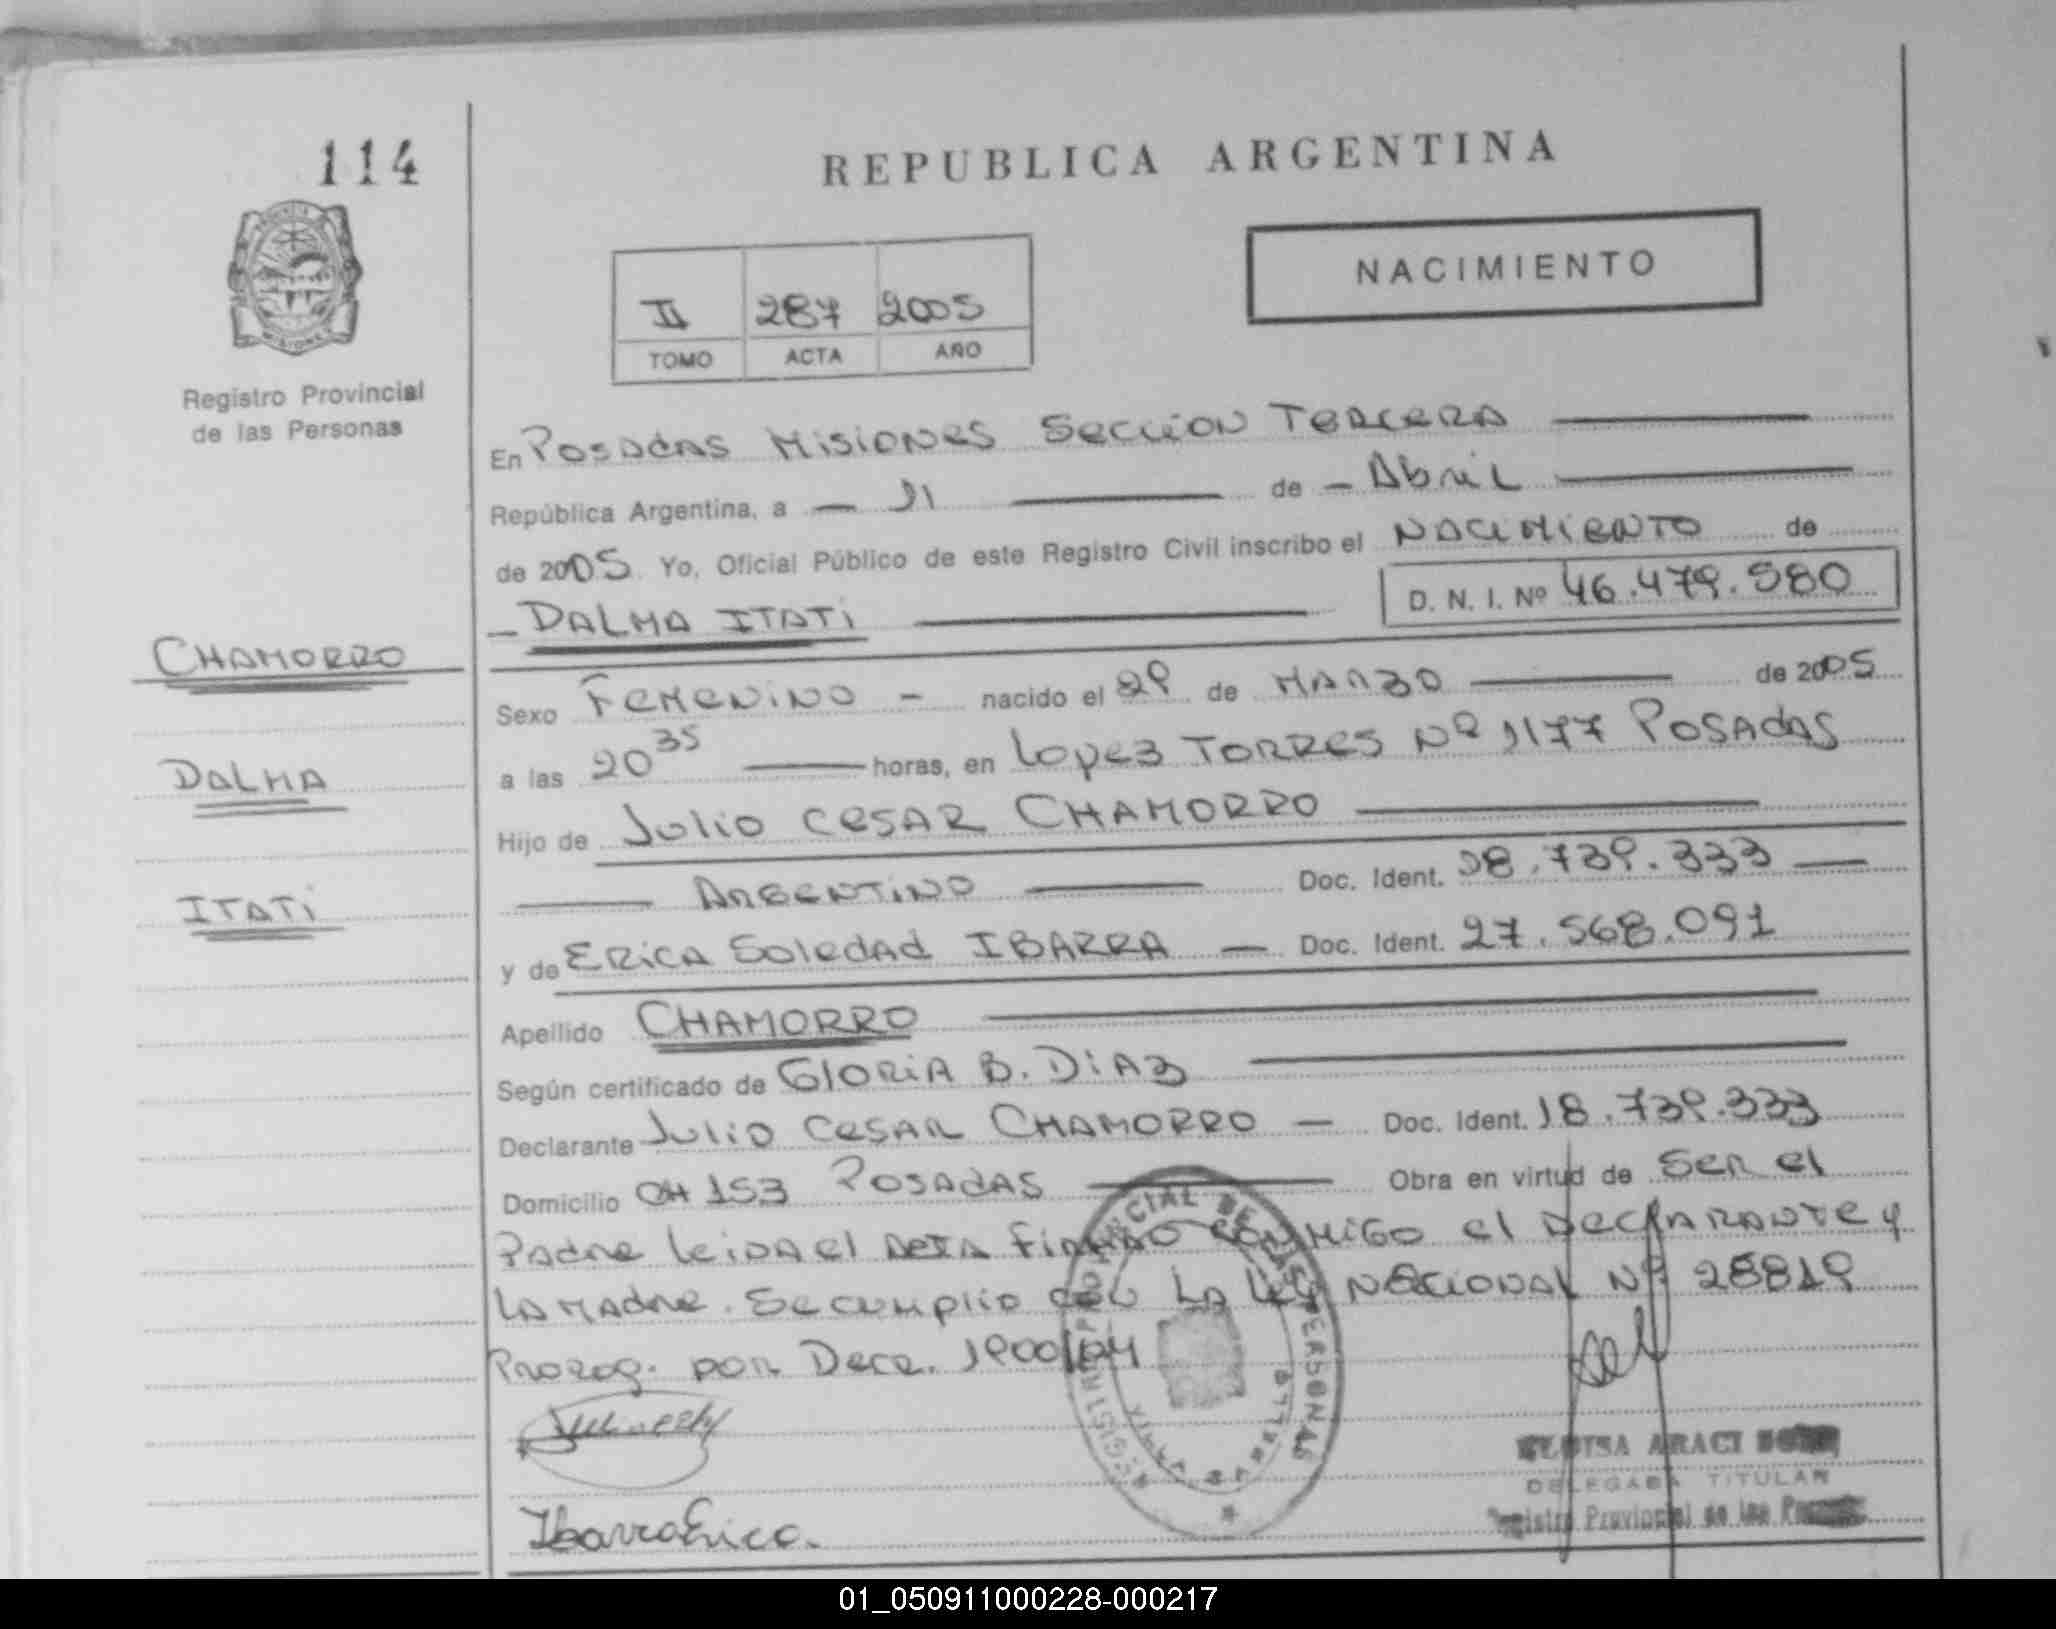 114
REPUBLICA ARGENTINA
NACIMIENTO
II 287 2005
TOMO ACTA AÑO
Registro Provincial
de las Personas
En Posadas Misiones Sección Tercera
República Argentina, a - 11 de - Abril
de 2005 Yo, Oficial Público de este Registro Civil inscribo el NACIMIENTO de
- DALMA ITATI D. N. I. Nº 46.479.580
CHAMORRO
DALMA
ITATI
Sexo Femenino - nacido el 29 de MARZO de 2005
a las 20 35 horas, en Lopez TORRES Nº 1177 POSAdAS
Hijo de Julio CESAR CHAMORRO
ARGENTINO Doc. Ident. 18.739.333
y de ERICA SoledAd IBARRA - Doc. Ident. 27.568.091
Apellido CHAMORRO
Según certificado de GLORIA B. DIAZ
Declarante Julio CESAR CHAMORRO - Doc. Ident. 18.739.333
Domicilio CH 153 POSADAS Obra en virtud de Ser el
Padre leida el Acta firman conmigo el Declarante y
La Madre. Se cumplio con La Ley Nacional Nº 25819
Prorog. por Decr. 1900/04
Ibarra Erica.
REGISTRO PROVINCIAL DE LAS PERSONAS
ELOISA ARACI
DELEGADA TITULAR
Registro Provincial de las
01_050911000228-000217